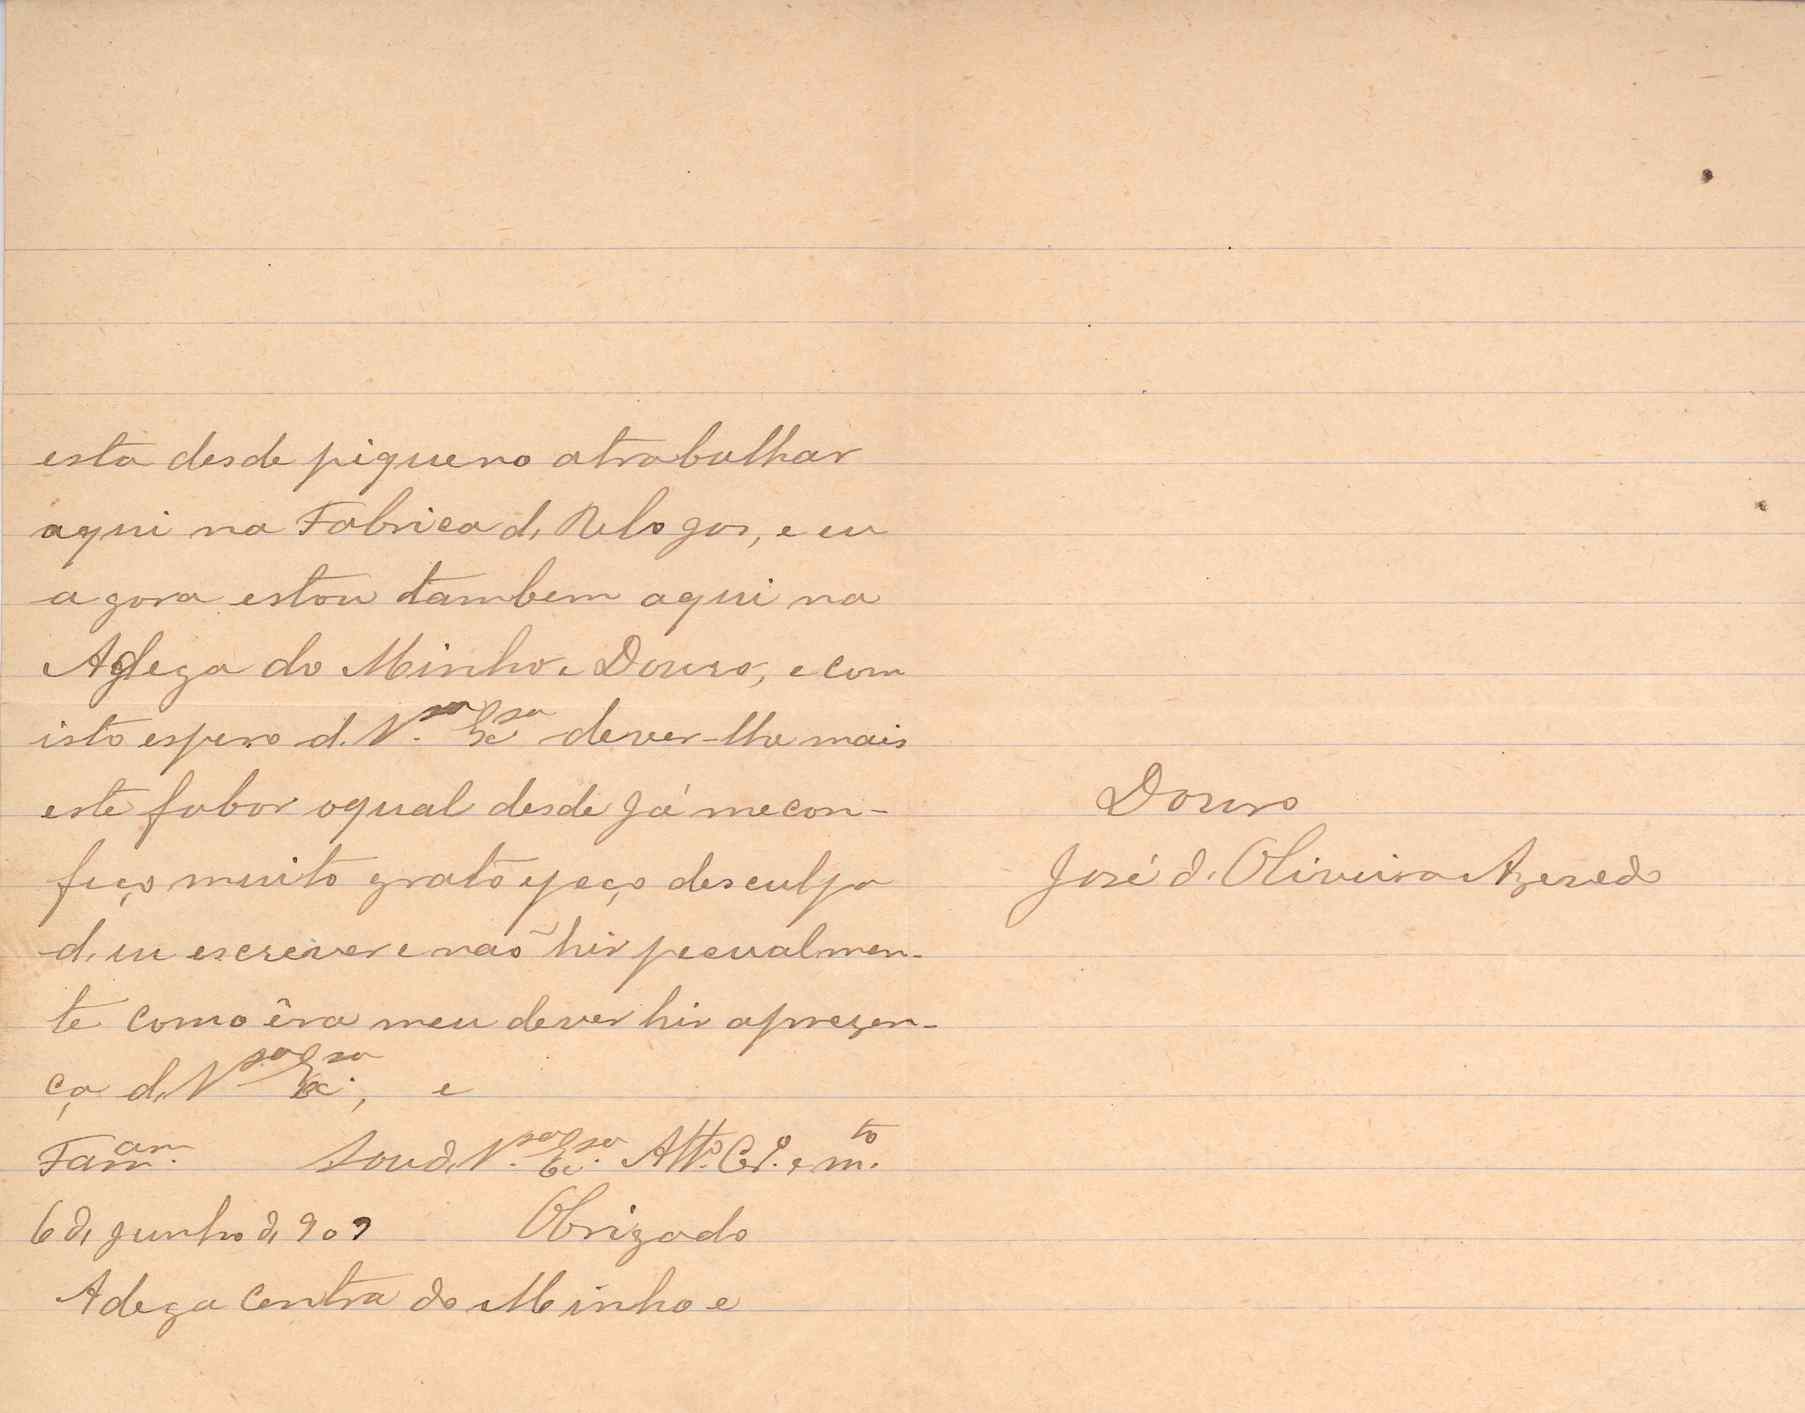 esta desde piqueno atrabalhar
aqui na Fabrica d. Relogos, e eu
agora estou tambem aqui na
Adega do Minho e Douro, e com
isto espero d. V.sa Exsa dever-lhe mais
este fabor oqual desde já mecon-
feço muito grato epeço desculpa
d. eu escrever e naõ hir pecualmen-
te como êra meu dever hir aprezen-
ça d. Vsa Exsa, e
Fam.am Soud. V.sa Exsa Att.o Cr.o e m.to
6 d. Junho d. 909 Obrigado
Adega Centra do Minho e
Douro
José d. Oliveira Azevedo